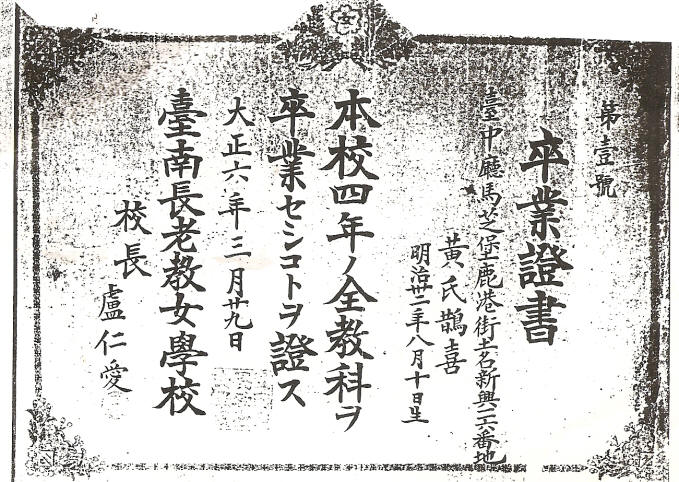 第壹號
卒業證書
臺中廳馬芝堡鹿港街土名新興三六番地
黃氏鵲喜
明治卅二年八月十日生
本校四年ノ全教科ヲ
卒業セシコトヲ證ス
大正六年三月廿九日
臺南長老教女學校
校長 盧仁愛